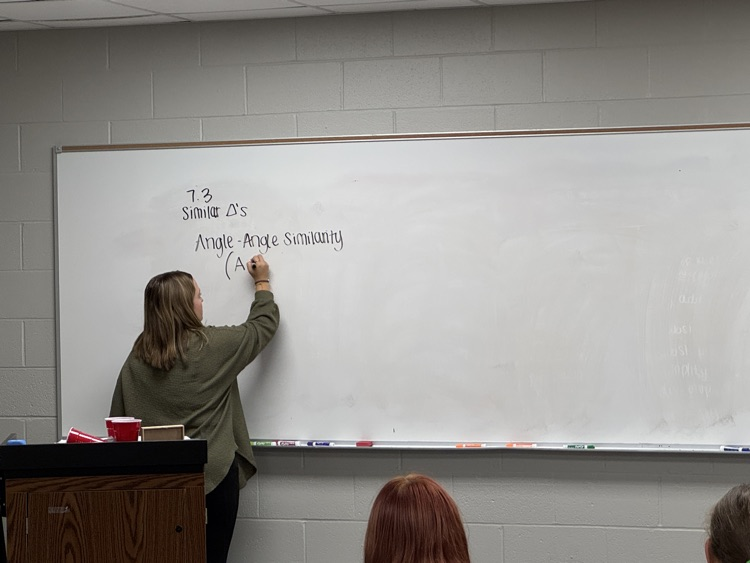 7.3
Similar Δ's
Angle-Angle Similarity
(A